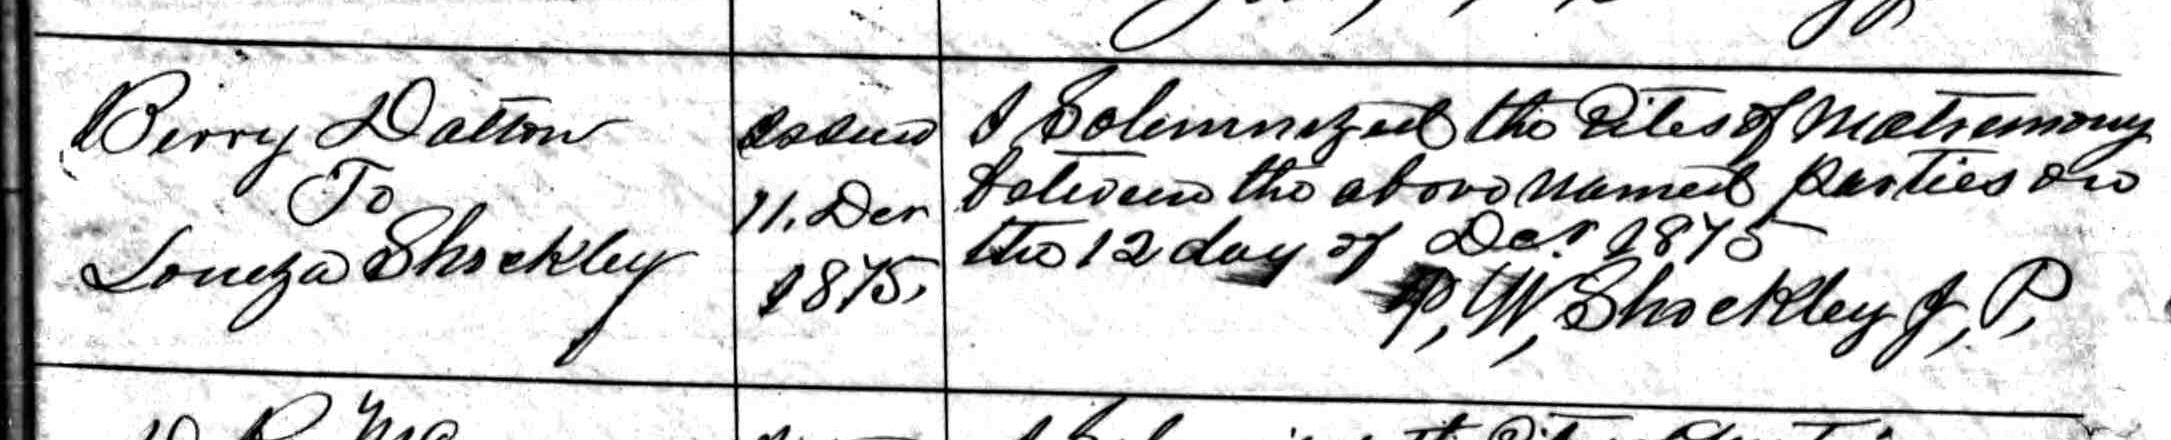 Berry Dalton
To
Loueza Shockley
Issued
11. Dec
1875,
I Solemnized the Rites of Matremony
between the above named parties on
the 12 day of Decr 1875
P, W, Shockley J, P,